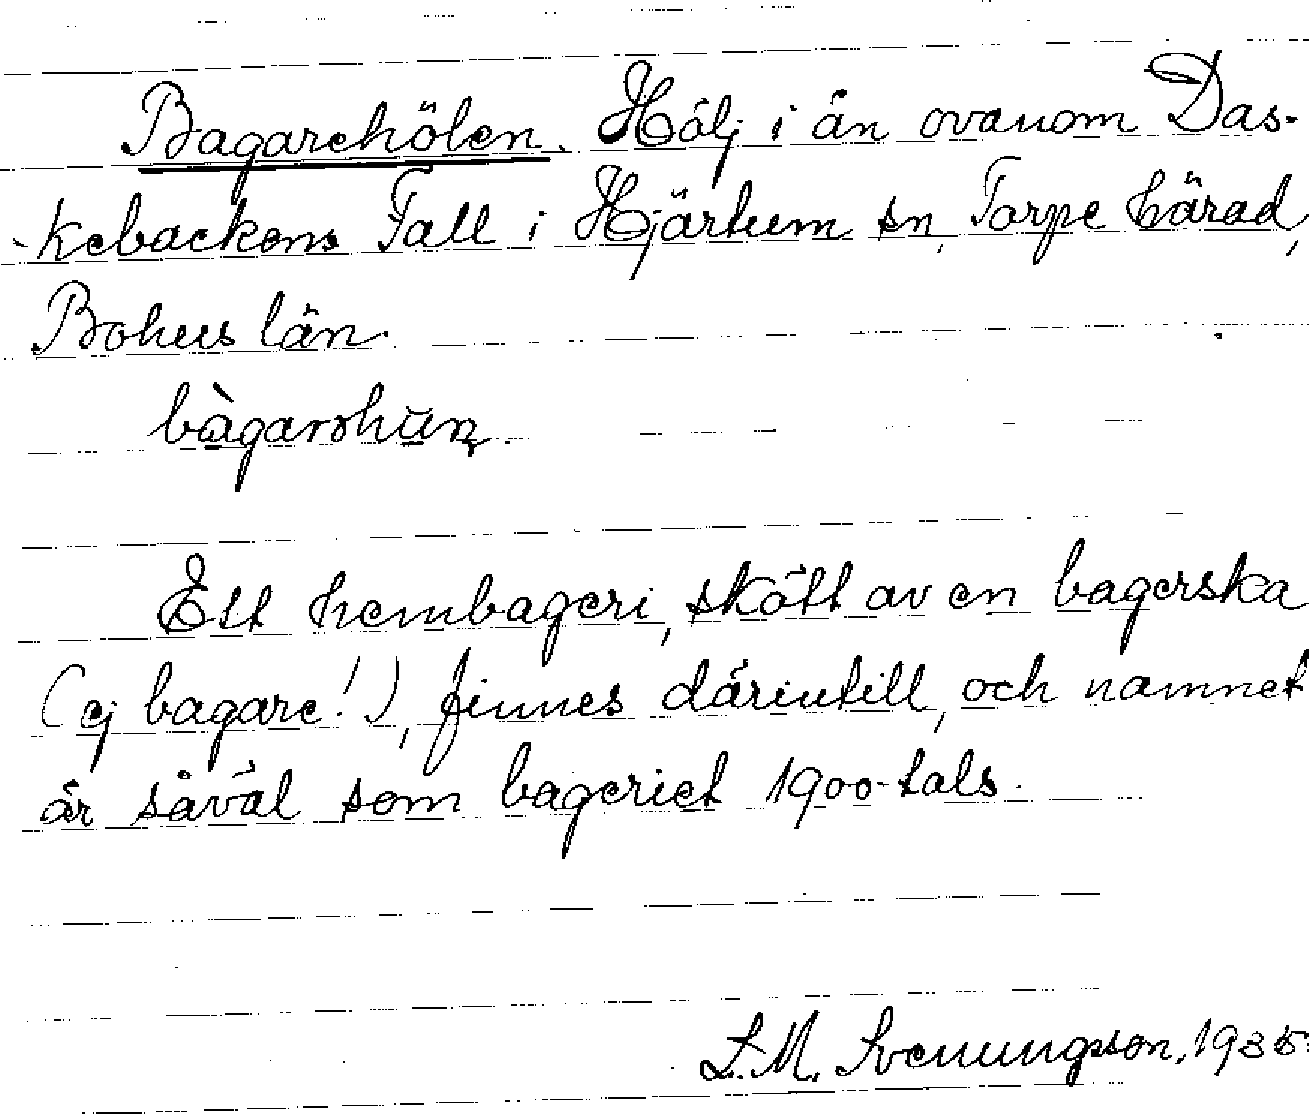 Bagarehölen. Hölj i ån ovanom Das-
kebackens Fall i Hjärtum sn, Torpe härad,
Bohus län.
bàgarəhūɳ.
Ett hembageri, skött av en bagerska
(ej bagare!), finnes därintill, och namnet
är såväl som bageriet 1900-tals.
S.M. Svenungsson, 1935.